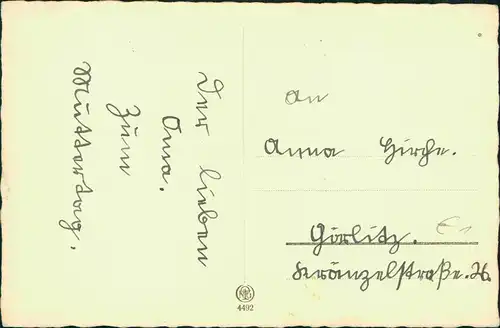 Der lieben
Oma.
Zum
Muttertag.
An
Anna Hirche.
Görlitz.
Kränzelstraße. 26.
4492